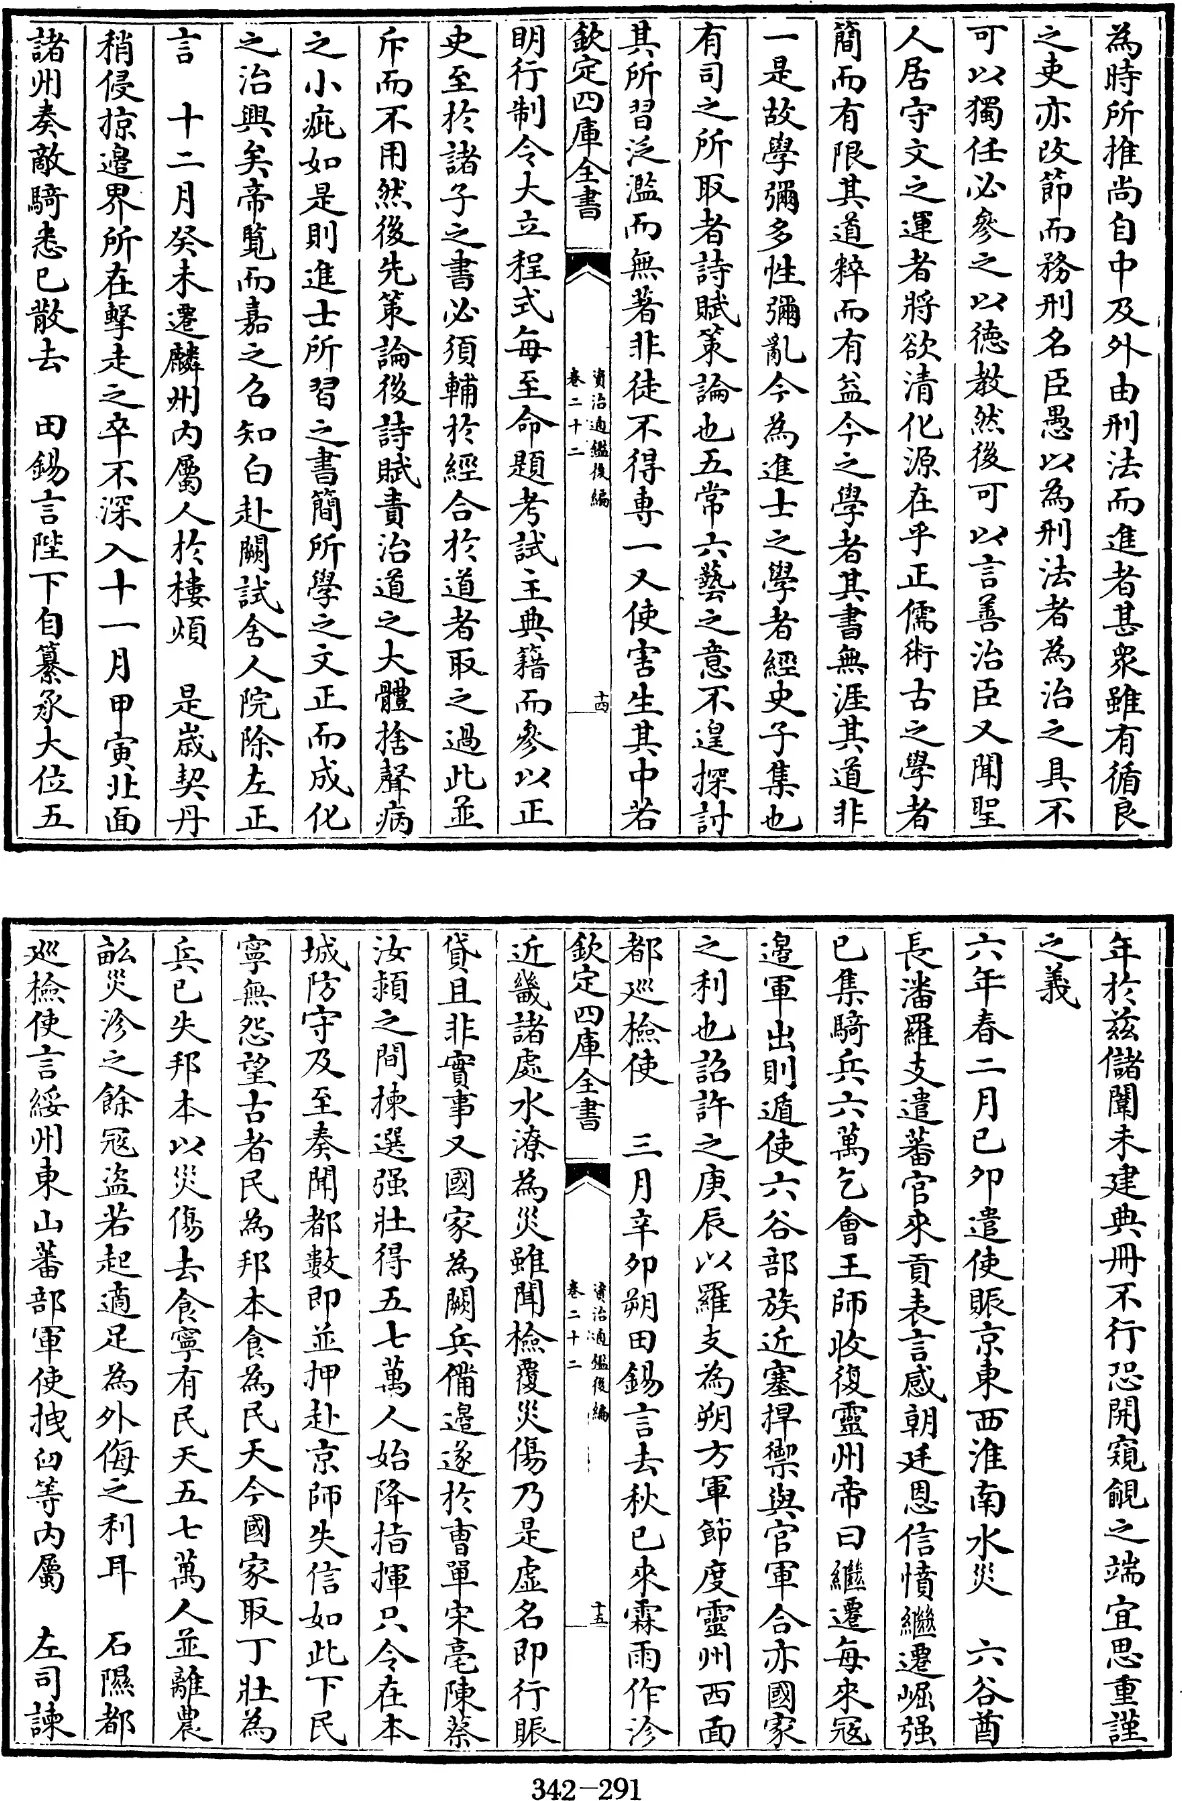 為時所推尚自中及外由刑法而進者甚衆雖有循良
之吏亦改節而務刑名臣愚以為刑法者為治之具不
可以獨任必參之以徳教然後可以言善治臣又聞聖
人居守文之運者將欲清化源在乎正儒術古之學者
簡而有限其道粹而有益今之學者其書無涯其道非
一是故學彌多性彌亂今為進士之學者經史子集也
有司之所取者詩賦策論也五常六藝之意不遑探討
其所習泛濫而無著非徒不得専一又使害生其中若
欽定四庫全書
資治通鑑後編
卷二十二
十四
明行制令大立程式每至命題考試主典籍而參以正
史至於諸子之書必須輔於經合於道者取之過此並
斥而不用然後先策論後詩賦責治道之大體捨聲病
之小疵如是則進士所習之書簡所學之文正而成化
之治興矣帝覧而嘉之召知白赴闕試舍人院除左正
言　十二月癸未遷麟州内屬人於樓煩　是歲契丹
稍侵掠邉界所在擊走之卒不深入十一月甲寅北面
諸州奏敵騎悉已散去　田錫言陛下自纂承大位五
年於兹儲闈未建典冊不行恐開窺覦之端宜思重謹
之義
六年春二月己夘遣使賑京東西淮南水災　六谷酋
長潘羅支遣蕃官來貢表言感朝廷恩信憤繼遷崛强
已集騎兵六萬乞㑹王師收復靈州帝曰繼遷每來冦
邉軍出則遁使六谷部族近塞捍禦與官軍合亦國家
之利也詔許之庚辰以羅支為朔方軍節度靈州西面
都廵檢使　三月辛夘朔田錫言去秋已來霖雨作沴
欽定四庫全書
資治通鑑後編
卷二十二
十五
近畿諸處水潦為災雖聞檢覆災傷乃是虚名即行賑
貸且非實事又國家為闕兵備邉遂於曹單宋亳陳蔡
汝潁之間揀選强壯得五七萬人始降指揮只令在本
城防守及至奏聞都數即並押赴京師失信如此下民
寧無怨望古者民為邦本食為民天今國家取丁壯為
兵已失邦本以災傷去食寧有民天五七萬人並離農
畝災沴之餘冦盜若起適足為外侮之利耳　石隰都
廵檢使言綏州東山蕃部軍使拽臼等内屬　左司諫
342-291